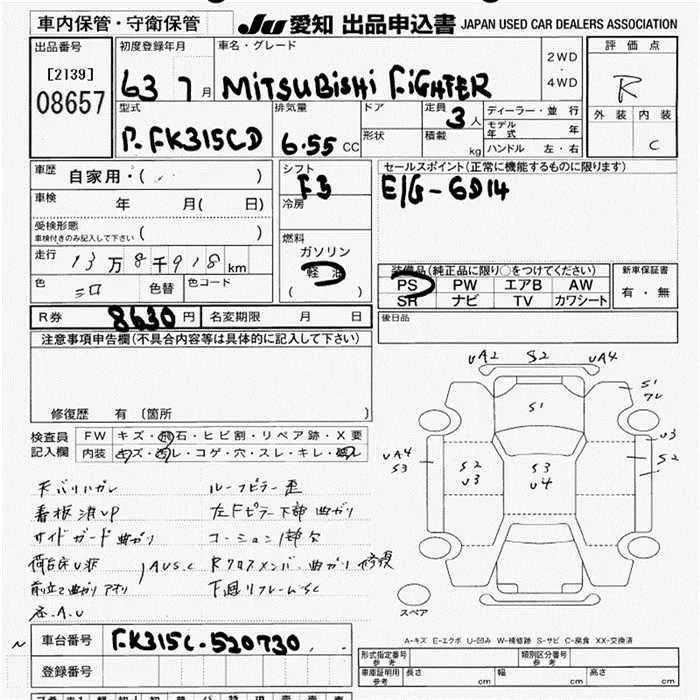 車内保管・守衛保管
JU 愛知 出品申込書 JAPAN USED CAR DEALERS ASSOCIATION
出品番号
[2139]
08657
初度登録年月
63 7月
車名・グレード
MITSUBISHI FIGHTER
2WD
・
4WD
評価点
R
外装 内装
C
型式
P-FK315CD
排気量
6.55 CC
ドア
形状
定員
3人
積載 kg
ディーラー・並行
モデル年式 年
ハンドル 左・右
車歴 自家用・( )
車検 年 月( 日)
受検形態
車検付きのみ記入して下さい ( )
走行 13万8千918km
色 シロ 色替 色コード
シフト
F5
冷房
燃料
ガソリン
軽油
( )
セールスポイント(正常に機能するものに限ります)
E/G-6D14
装備品(純正品に限り○をつけてください)
PS PW エアB AW
SR ナビ TV カワシート
新車保証書
有・無
後日品
R券 8630円 名変期限 月 日
注意事項申告欄(不具合内容等は具体的に記入して下さい)
修復歴 有 (箇所 )
検査員
記入欄
FW キズ・飛石・ヒビ割・リペア跡・X要
内装 キズ・汚レ・コゲ・穴・スレ・キレ・破レ
天バリハガレ
看板消UP
サイドガード曲ガリ
荷台床U歪
前立て曲ガリ
各A.U
ルーフピラー歪
左Fピラー下部曲ガリ
コーション1部欠
Rクロスメンバー曲ガリ修復
下廻リフレームSC
UA2 S2 UA4
S1
S1
UA4
S3
S2
U3
S3
U4
U3
S2
スペア
A-キズ E-エクボ U-凹み W-補修跡 S-サビ C-腐食 XX-交換済
車台番号 FK315C-520730
登録番号
型式指定番号
参考
類別区分番号
参考
車庫証明用
参考
長さ cm 幅 cm 高さ cm